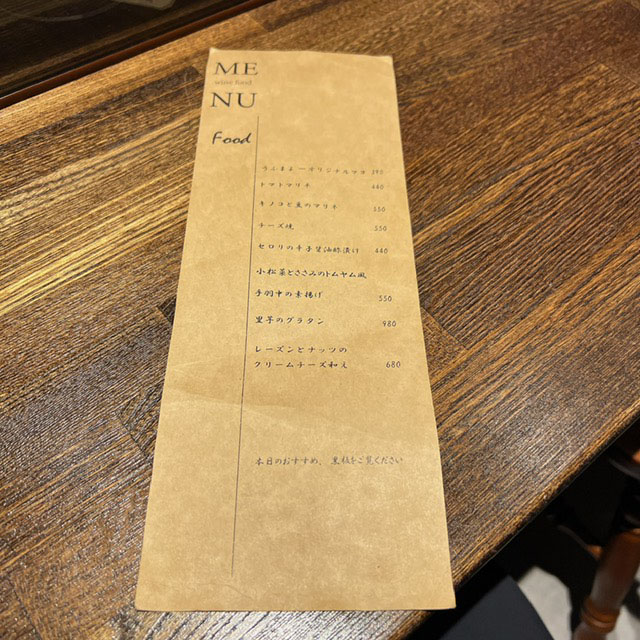 ME
wine food
NU
Food
オリジナル 390
トマトマリネ 440
キノコと のマリネ 550
チーズ焼 550
セロリの 醤油酢漬け 440
小松菜とささみのトムヤム風
手羽中の素揚げ 550
里芋のグラタン 980
レーズンとナッツの
クリームチーズ和え 680
本日のおすすめ、黒板をご覧ください